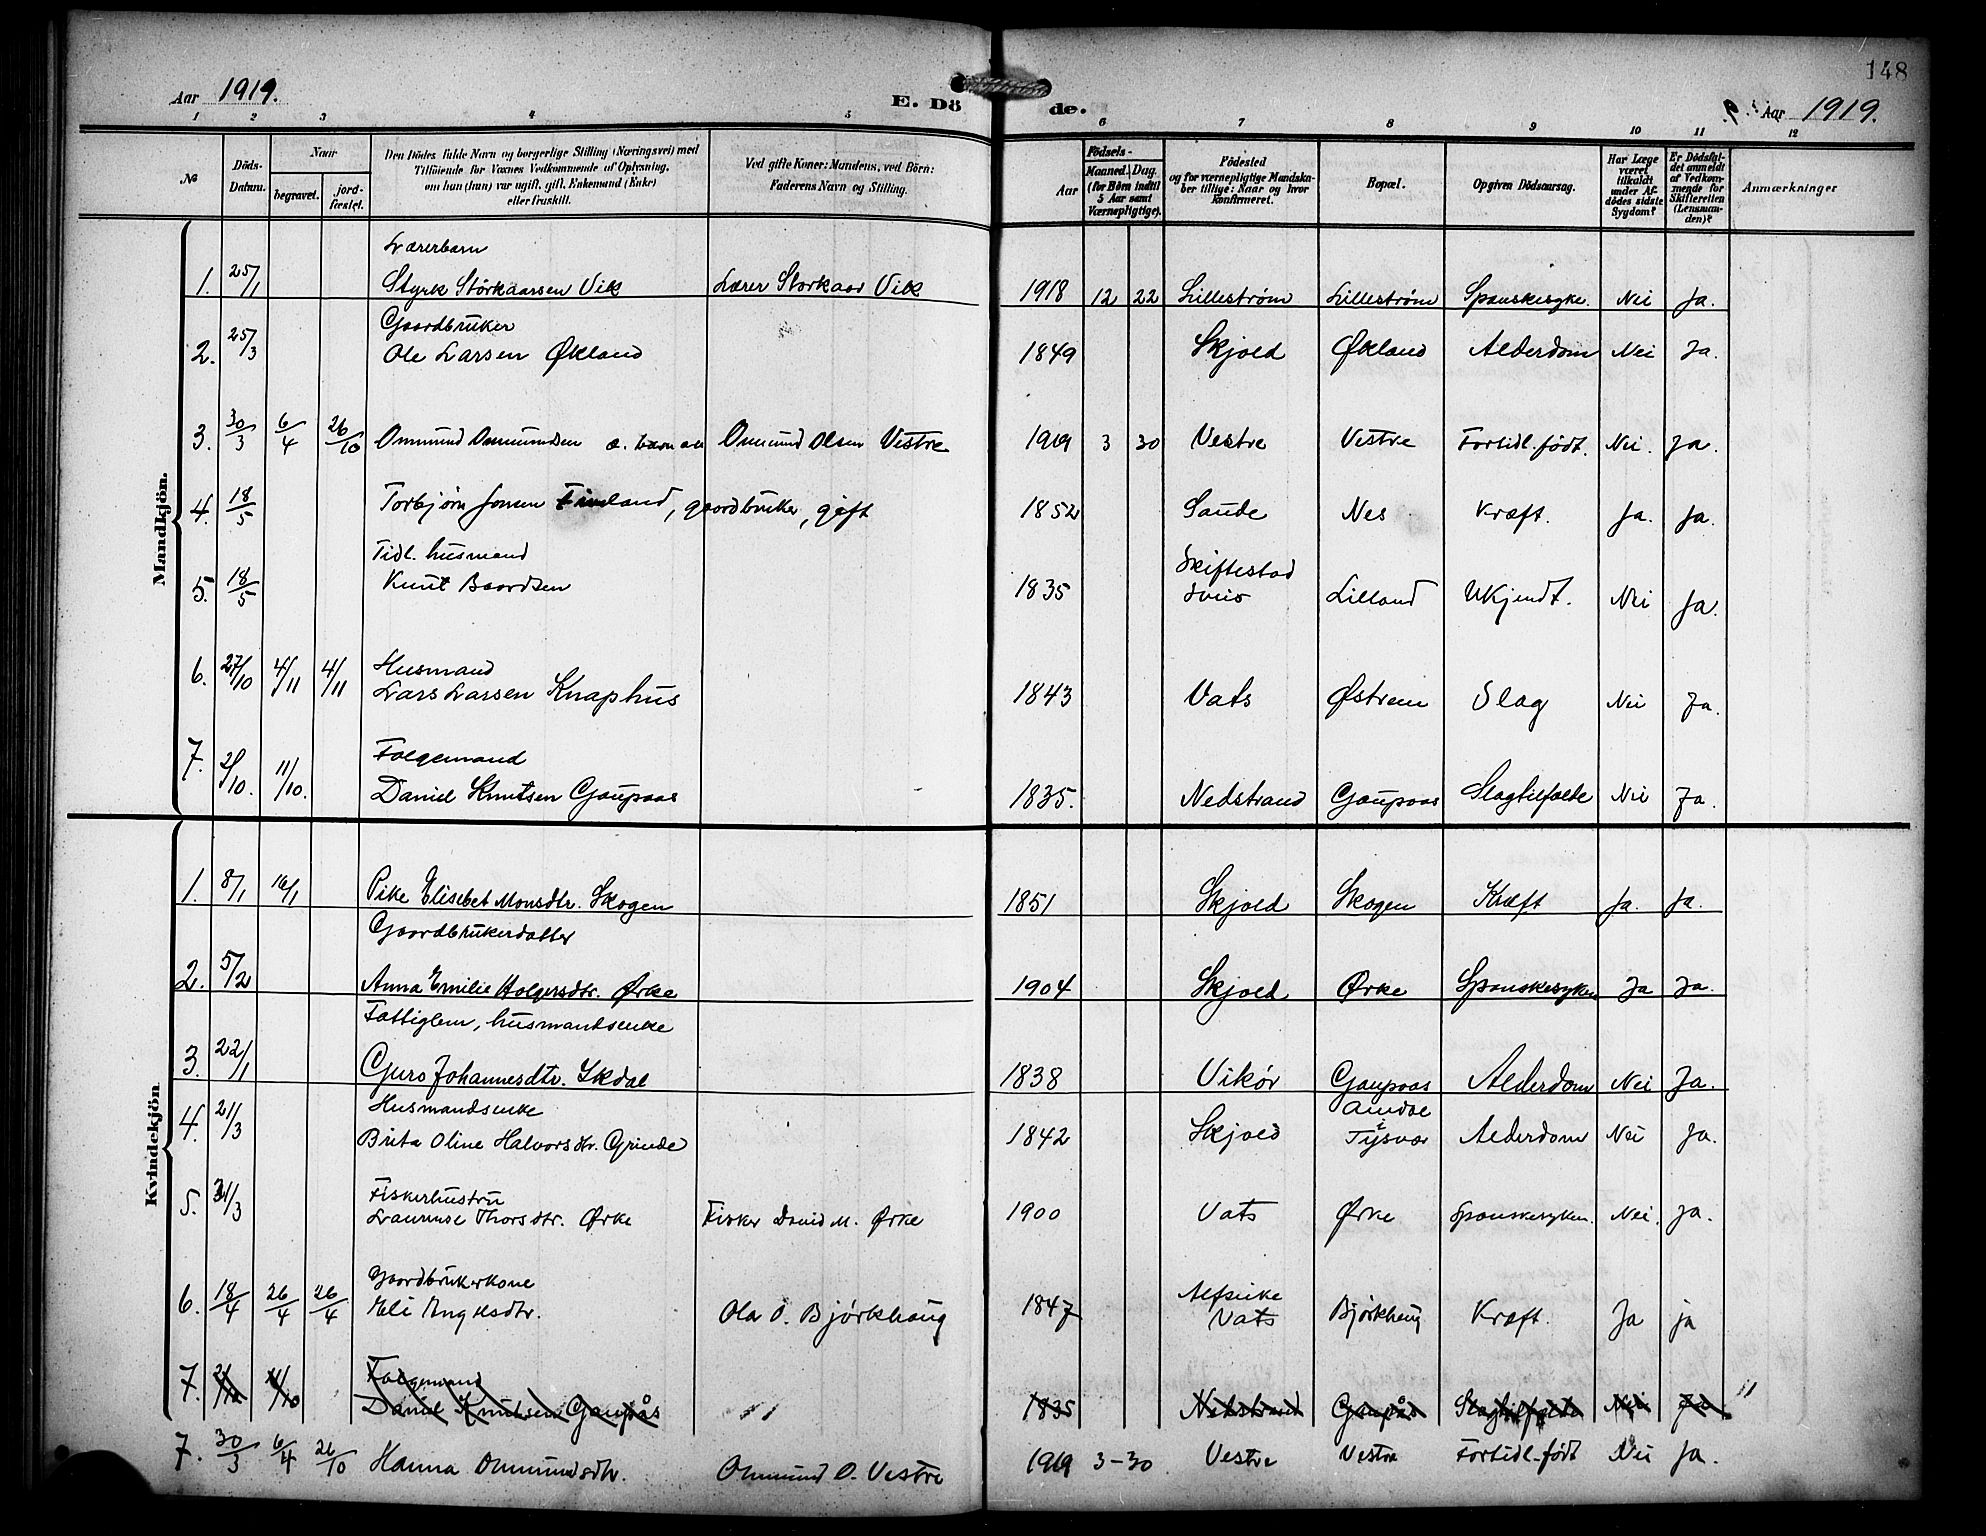 148
Aar 1919.
E. Dö de.
Aar 1919.
1 2 3 4 5 6 7 8 9 10 11 12
№
Döds-Datum.
Naar
begravet.
jord-fæstet.
Den Dödes fulde Navn og borgerlige Stilling (Næringsvei) med
Tilföiende for Voxnes Vedkommende af Oplysning,
om hun (han) var ugift, gift, Enkemand (Enke)
eller fraskilt.
Ved gifte Koner: Mandens, ved Börn:
Faderens Navn og Stilling.
Födsels-
Aar
Maaned. Dag.
(for Börn indtil
5 Aar samt
Værnepligtige).
Födested
og for værnepligtige Mandska-
ber tillige: Naar og hvor
konfirmeret.
Bopæl.
Opgiven Dödsaarsag.
Har Læge
været
tilkaldt
under Af-
dödes sidste
Sygdom?
Er Dödsfal-
det anmeldt
af Vedkom-
mende for
Skifteretten
(Lensman-
den)?
Anmærkninger
Mandkjön.
Lærerbarn
1. 25/1 Styrk Störkaarsen Vik Lærer Storkaar Vik 1918 12 22 Lilleström Lilleström Spanskesyke. Nei Ja.
Gaardbruker
2. 25/3 Ole Larsen Økland 1849 Skjold Økland Alderdom Nei Ja.
3. 30/3 6/4 26/10 Ommund Ommundsen æ. barn av Ommund Olsen Vestre 1919 3 30 Vestre Vestre Fortidl. født. Nei. Ja.
4. 18/5 Torbjörn Jonsen land, gaardbruker, gift 1852 Saude Nes Kræft. Ja. Ja.
Tidl. husmand
5. 18/5 Knut Baardsen 1835 Skiftestad Sveio Lilland Ukjendt. Nei Ja.
Husmand
6. 27/10 4/11 4/11 Lars Larsen Knaphus 1843 Vats Østrem Slag Nei Ja.
Folgemand
7. 2/10. 11/10. Daniel Knutsen Gaupaas 1835. Nedstrand Gaupaas Slagtilfælde Nei Ja.
Kvindekjön
1. 8/1 16/1 Pike Elisebet Monsdtr. Skogen 1851 Skjold Skogen Kræft Ja. Ja.
Gaardbrukerdatter
2. 5/2 Anna Emilie Holgersdtr. Ørke 1904 Skjold Ørke Spanskesyken Ja Ja.
Fattiglem, husmandsenke
3. 22/1 Guro Johannesdtr. Ekdal 1838 Vikör Gaupaas Alderdom Nei Ja.
Husmandsenke
4. 21/3 Brita Oline Halvorsdtr. Grinde 1842 Skjold Amdal i Tysvær Alderdom Nei Ja.
Fiskerhustru
5. 31/3 Laurense Thorsdtr. Ørke Fisker David M. Ørke 1900 Vats Ørke Spanskesyken. Nei. Ja.
Gaardbrukerkone
6. 18/4 26/4 26/4 Eli Engelsdtr. Ola O. Björkhaug 1847 Alfseike Vats Björkhaug Kræft. Ja ja
Folgemand
7. 2/10 11/10 Daniel Knutsen Gaupås " 1835 Nedstrand Gaupås Slagtilfælde Nei Ja "
7. 30/3 6/4 26/10 Hanna Ommundsdtr. Ommund O. Vestre 1919 3-30 Vestre Vestre Fortidl. født Nei Ja.